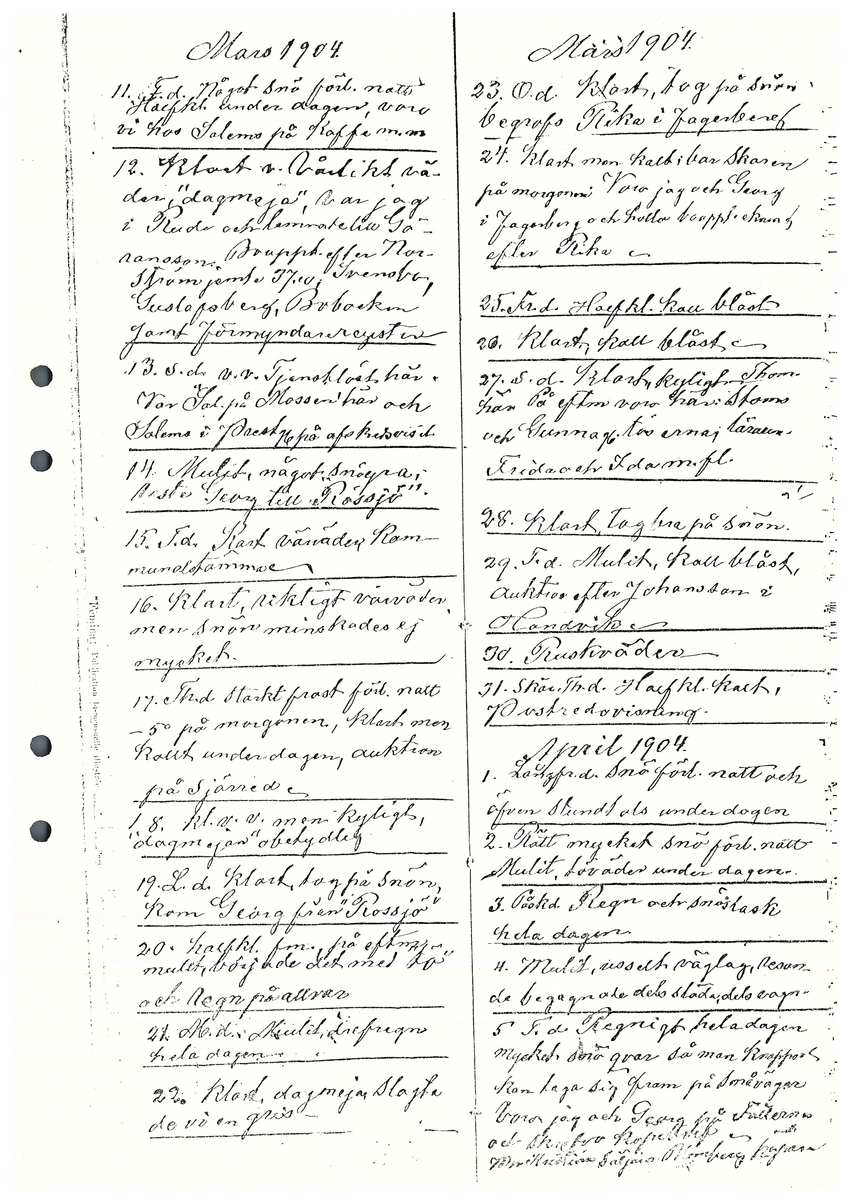 Mars 1904.
11. F.d. Något snö förl. natt
Halfkl. under dagen, voro
vi hos Salems på Kaffe m.m
12. Klart v. Vårlikt vä-
der, "dagmeja", var jag
i Rude och lemnade till Gö-
ransson. Bouppt. efter Nor-
ström jemte 37.10, Svensbo,
Gustafsberg, Bobacken
Jamt Förmyndareregister
13. S.d. v.v. Tjenstlöst här.
Var Sal. på Mossen här och
Salems i Prestg. på afskedsvisit
14. Mulit, något snögra,
reste Georg till "Rössjö".
15. T.d. Kart vårväder, Kom-
munalstämma
16. Klart, riktigt vårväder,
men snön minskades ej
mycket.
17. Th.d starkt frost förl. natt
-5° på morgonen, klart men
kallt under dagen, auktion
på Sjärred
18. kl. v.v. men kyligt,
"dagmejan" obetydlig
19. L.d. Klart, tog på snön,
kom Georg från "Rossjö"
20. halfkl. fm., på eftm.
mulet, började det med tö
och regn på allvar
21. M.d. Mulit, regn
hela dagen
22. Klart, dagmeja, slagta
de vi en gris
Mars 1904.
23. O.d Klart, tog på snön.
begrofs Rika i Fagerberg
24. Klart men kallt, bar skaren
på morgonen. Voro jag och Georg
i Fagerberg och hollo bouppteckning
efter Rika
25. Fr.d. Halfkl. kall blåst
26. Klart, kall blåst
27. S.d. Klart, kyligt, Thom.
här På eftm voro här: Stoms
och Gunnag. töverna, lärarin.
Frida och Ida m.fl.
28. Klart, tog bra på snön.
29. T.d. Mulit, kall blåst,
auktion efter Johansson i
Handvik
30. Ruskväder
31. Skär.Th.d. Halfkl. kalt,
Postredovisning.
April 1904.
1. Långfr.d. Snö förl. natt och
äfven stundtals under dagen
2. Rätt mycket snö förl. natt
Mulit, töväder under dagen.
3. Påskd Regn och snöslask
hela dagen
4. Mulit, usselt väglag, resan-
de begagnade dels släda, dels vagn
5 T.d Regnigt hela dagen
mycket snö qvar så man knappast
kan taga sig fram på småvägar
Voro jag och Georg på Fällorna
och skrefvo